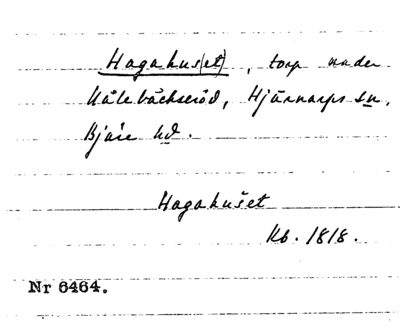 Hagahus(et), torp under
Kålebäckseröd, Hjärnarps sn,
Bjäre hd.
Hagahuset
Kb. 1818.
Nr 6464.